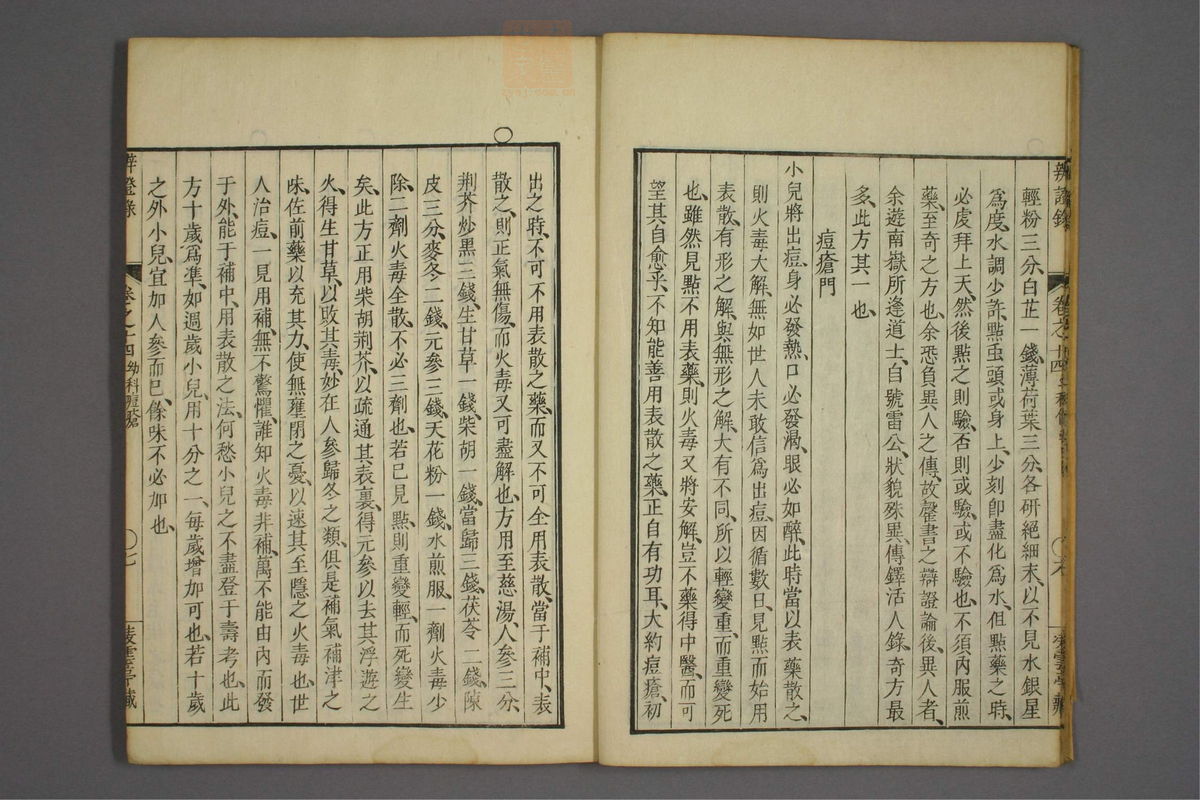 輕粉三分、白芷一錢、薄荷葉三分、各研絕細末、以不見水銀星
爲度、水調少許、點虫頭或身上、少刻卽盡化爲水、但點藥之時、
必虔拜上天、然後點之則驗、否則或驗或不驗也、不須內服煎
藥、至奇之方也、余恐負異人之傳、故罄書之辯證論後、異人者、
余遊南嶽所逢道士、自號雷公、狀貌殊異、傳鐸活人錄、奇方最
多、此方其一也、
痘瘡門
小兒將出痘、身必發熱、口必發渴、眼必如醉、此時當以表藥散之、
則火毒大解、無如世人未敢信爲出痘、因循數日、見點而始用
表散、有形之解、與無形之解、大有不同、所以輕變重、而重變死
也、雖然見點不用表藥、則火毒又將安解、豈不藥得中醫、而可
望其自愈乎、不知能善用表散之藥、正自有功耳、大約痘瘡、初
出之時、不可不用表散之藥、而又不可全用表散、當于補中、表
散之、則正氣無傷、而火毒又可盡解也、方用至慈湯、人參三分、
荆芥炒黑三錢、生甘草一錢、柴胡一錢、當歸三錢、茯苓二錢、陳
皮三分、麥冬二錢、元參三錢、天花粉一錢、水煎服、一劑火毒少
除、二劑火毒全散、不必三劑也、若已見點、則重變輕、而死變生
矣、此方正用柴胡荆芥、以疏通其表裏、得元參以去其浮遊之
火、得生甘草、以敗其毒、妙在人參歸冬之類、俱是補氣補津之
味、佐前藥以充其力、使無壅閉之憂、以速其至隱之火毒也、世
人治痘、一見用補、無不驚懼、誰知火毒非補、萬不能由內而發
于外、能于補中、用表散之法、何愁小兒之不盡登于壽考也、此
方十歲爲準、如週歲小兒、用十分之一、每歲增加可也、若十歲
之外小兒、宜加人參而已、餘味不必加也、
卷之十四 幼科痘瘡